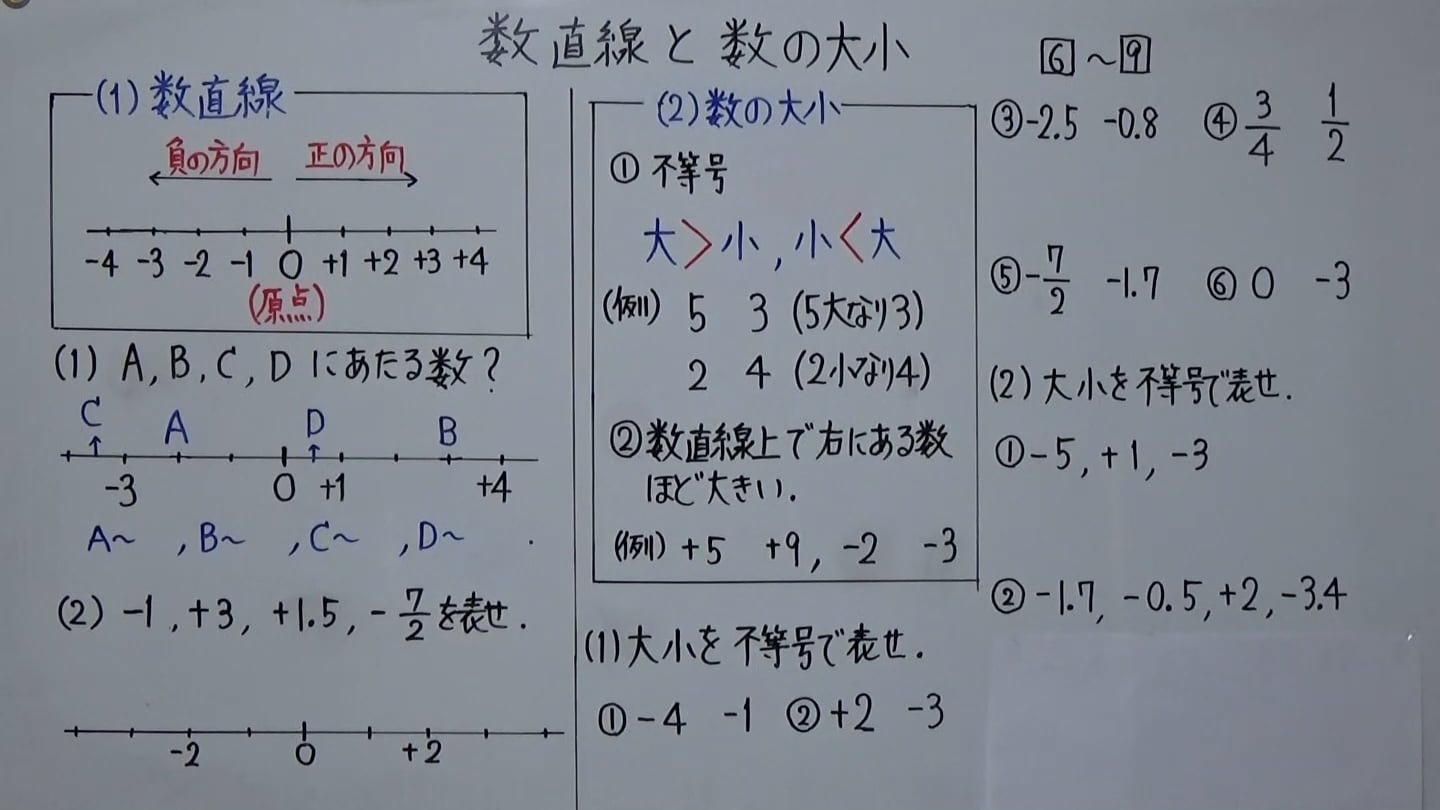 数直線と数の大小
6～9
(1)数直線
負の方向 正の方向
-4 -3 -2 -1 0 +1 +2 +3 +4
(原点)
(1) A, B, C, D にあたる数?
C A D B
-3 0 +1 +4
A～ , B～ , C～ , D～ .
(2) -1, +3, +1.5, -7/2 を表せ.
-2 0 +2
(2)数の大小
① 不等号
大>小, 小<大
(例) 5 3 (5大なり3)
2 4 (2小なり4)
②数直線上で右にある数
ほど大きい.
(例) +5 +9, -2 -3
(1)大小を不等号で表せ.
①-4 -1 ②+2 -3
③-2.5 -0.8 ④3/4 1/2
⑤-7/2 -1.7 ⑥0 -3
(2)大小を不等号で表せ.
①-5, +1, -3
②-1.7, -0.5, +2, -3.4